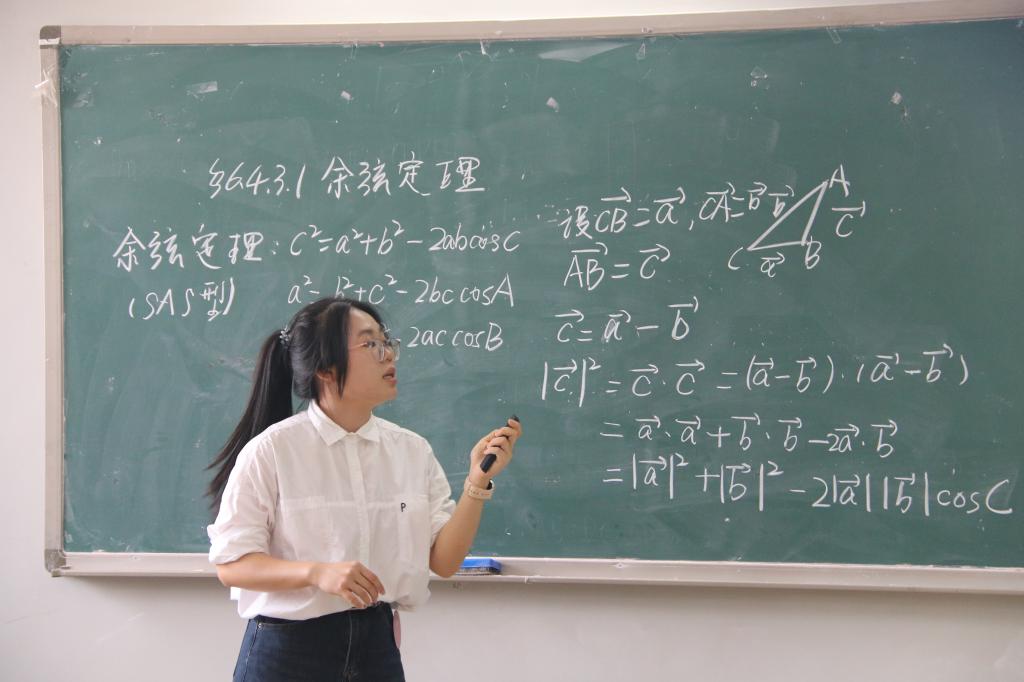 §6.4.3.1 余弦定理
余弦定理: c²=a²+b²-2abcosC
(SAS型) a²=b²+c²-2bccosA
2accosB
设CB⃗=a⃗, CA⃗=b⃗
AB⃗=c⃗
A
b⃗
c⃗
C
a⃗
B
c⃗=a⃗-b⃗
|c⃗|²=c⃗·c⃗=(a⃗-b⃗)·(a⃗-b⃗)
=a⃗·a⃗+b⃗·b⃗-2a⃗·b⃗
=|a⃗|²+|b⃗|²-2|a⃗||b⃗|cosC
P